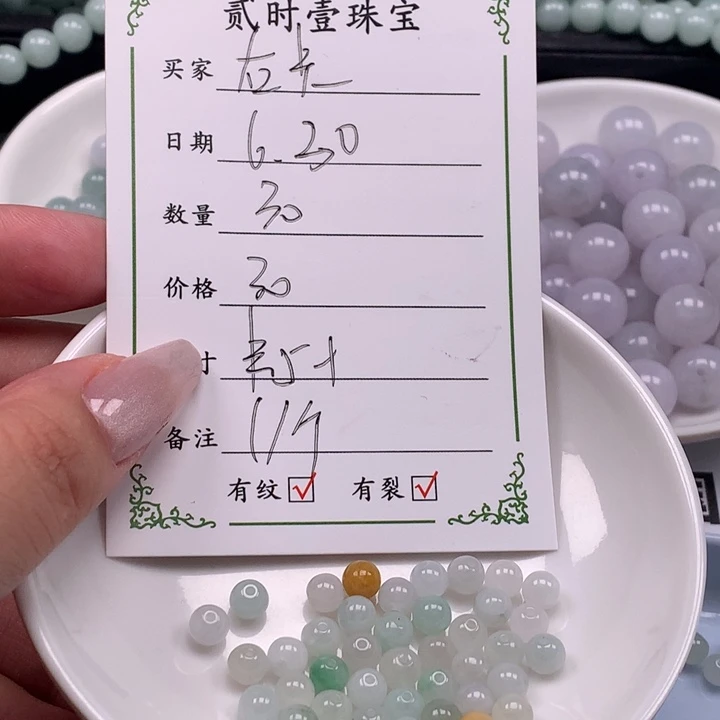 贰时壹珠宝
买家
日期 6.30
数量 30
价格 30
寸
备注
有纹 ☑ 有裂 ☑